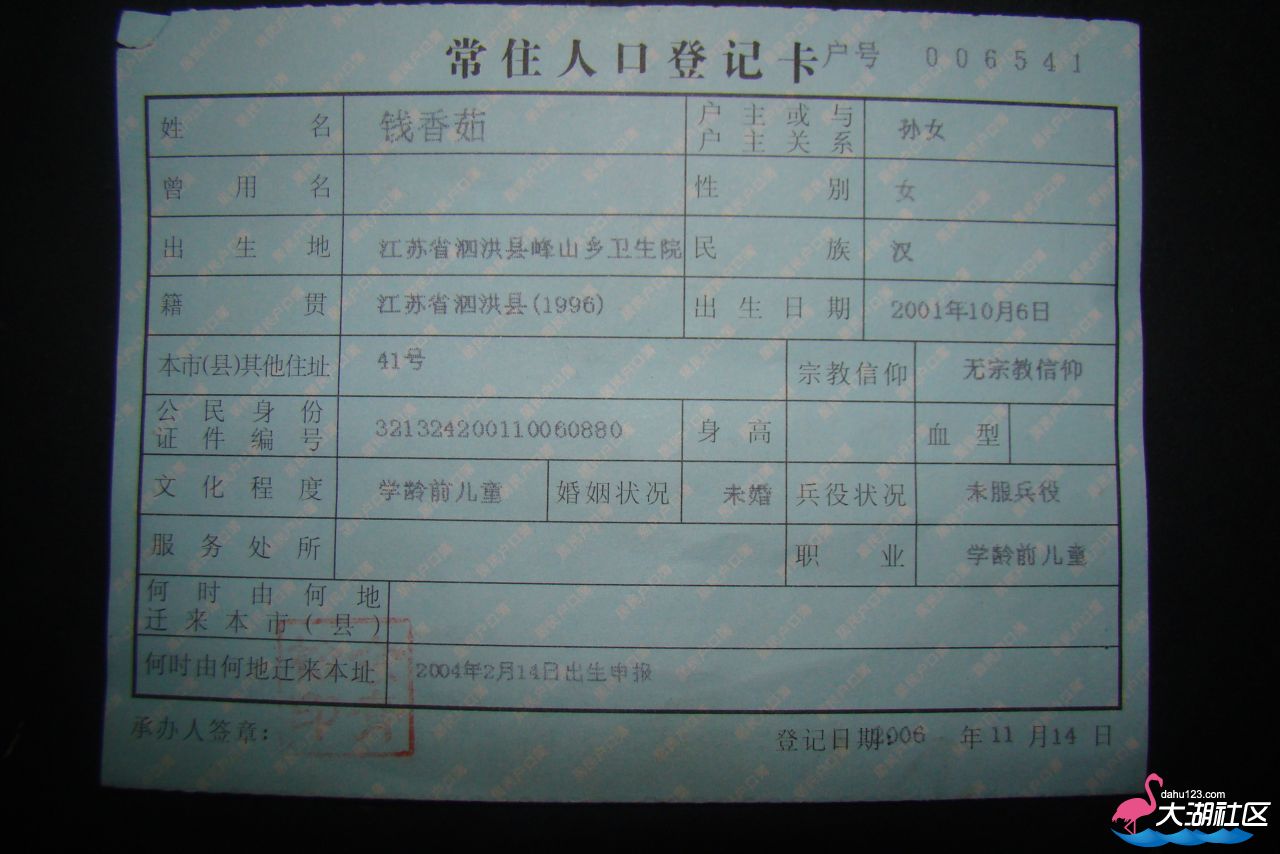 常住人口登记卡 户号 006541
姓名 钱香茹 户主或与户主关系 孙女
曾用名 性别 女
出生地 江苏省泗洪县峰山乡卫生院 民族 汉
籍贯 江苏省泗洪县(1996) 出生日期 2001年10月6日
本市(县)其他住址 41号 宗教信仰 无宗教信仰
公民身份证件编号 321324200110060880 身高 血型
文化程度 学龄前儿童 婚姻状况 未婚 兵役状况 未服兵役
服务处所 职业 学龄前儿童
何时由何地迁来本市(县)
何时由何地迁来本址 2004年2月14日出生申报
承办人签章: 登记日期:2006 年 11 月 14 日
dahu123.com
大湖社区